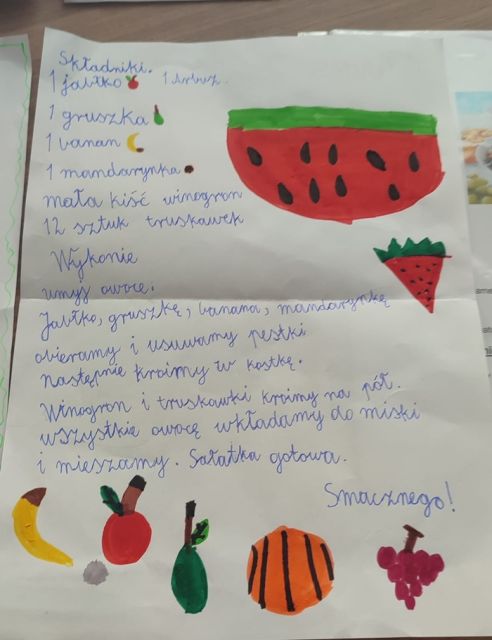 Składniki.
1 jabłko 1 arbuz.
1 gruszka
1 banan
1 mandarynka
mała kiść winogron
12 sztuk truskawek
Wykonie
umyj owoce.
Jabłko, gruszkę, banana, mandarynkę
obieramy i usuwamy pestki
następnie kroimy w kostkę.
Winogron i truskawki kroimy na pół.
wszystkie owocę wkładamy do miski
i mieszamy. Sałatka gotowa.
Smacznego!